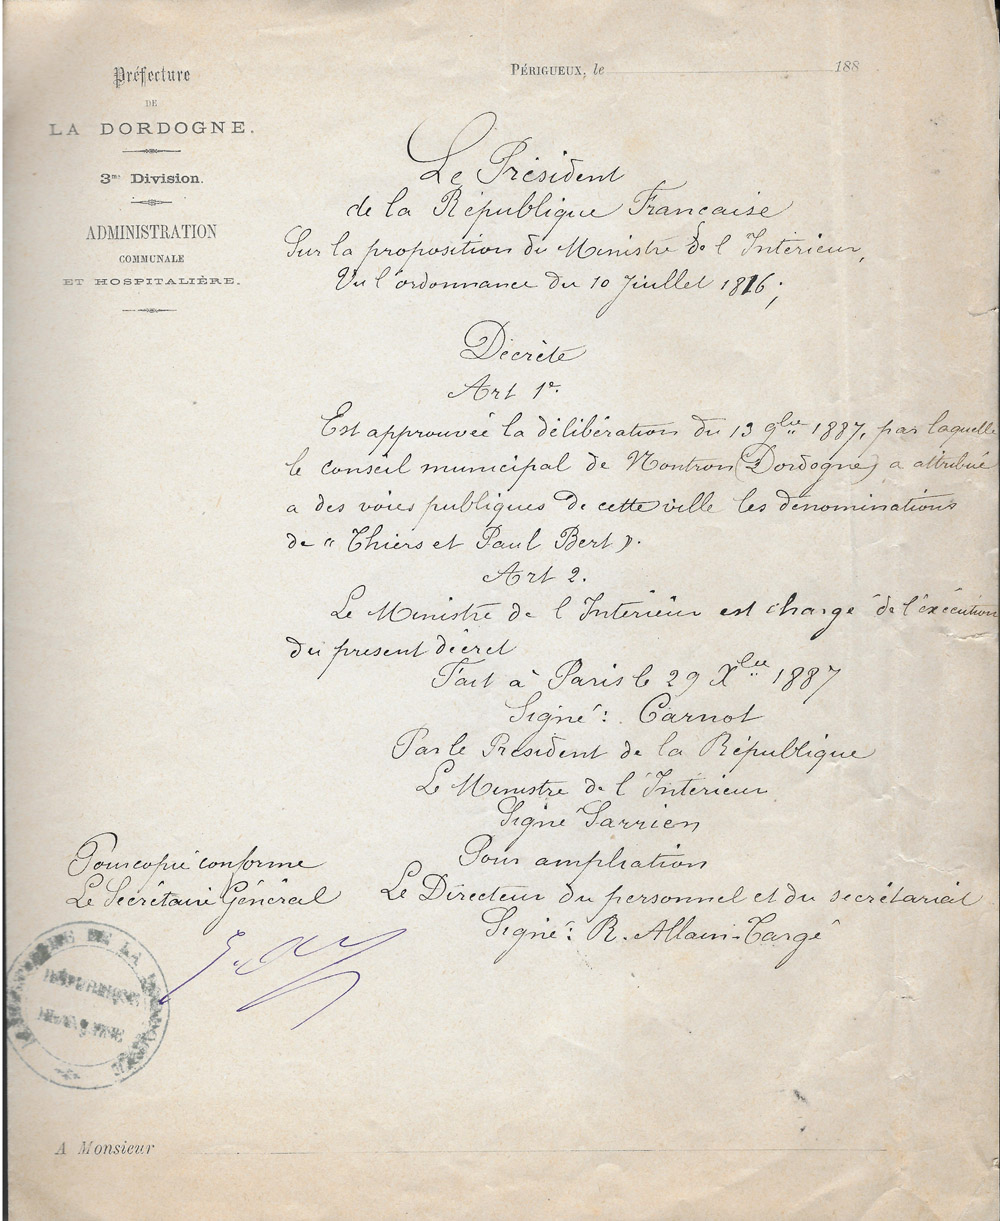 Préfecture
DE
LA DORDOGNE.
3me Division.
ADMINISTRATION
COMMUNALE
ET HOSPITALIÈRE.
PÉRIGUEUX, le 188
Le Président
de la République Française
Sur la proposition du Ministre de l'Intérieur,
Vu l'ordonnance du 10 Juillet 1816;
Décrète
Art 1er.
Est approuvée la délibération du 13 9bre 1887, par laquelle
le conseil municipal de Nontron (Dordogne) a attribué
a des voies publiques de cette ville les dénominations
de "Thiers et Paul Bert".
Art 2.
Le Ministre de l'Intérieur est chargé de l'exécution
du present décret
Fait à Paris le 29 Xbre 1887
Signé: Carnot
Par le Président de la République
Le Ministre de l'Intérieur
Signé Sarrien
Pour ampliation
Le Directeur du personnel et du secrétariat
Signé: R. Allain-Targé
Pour copie conforme
Le Secrétaire Général
DE LA DORDOGNE
RÉPUBLIQUE
FRANÇAISE
A Monsieur